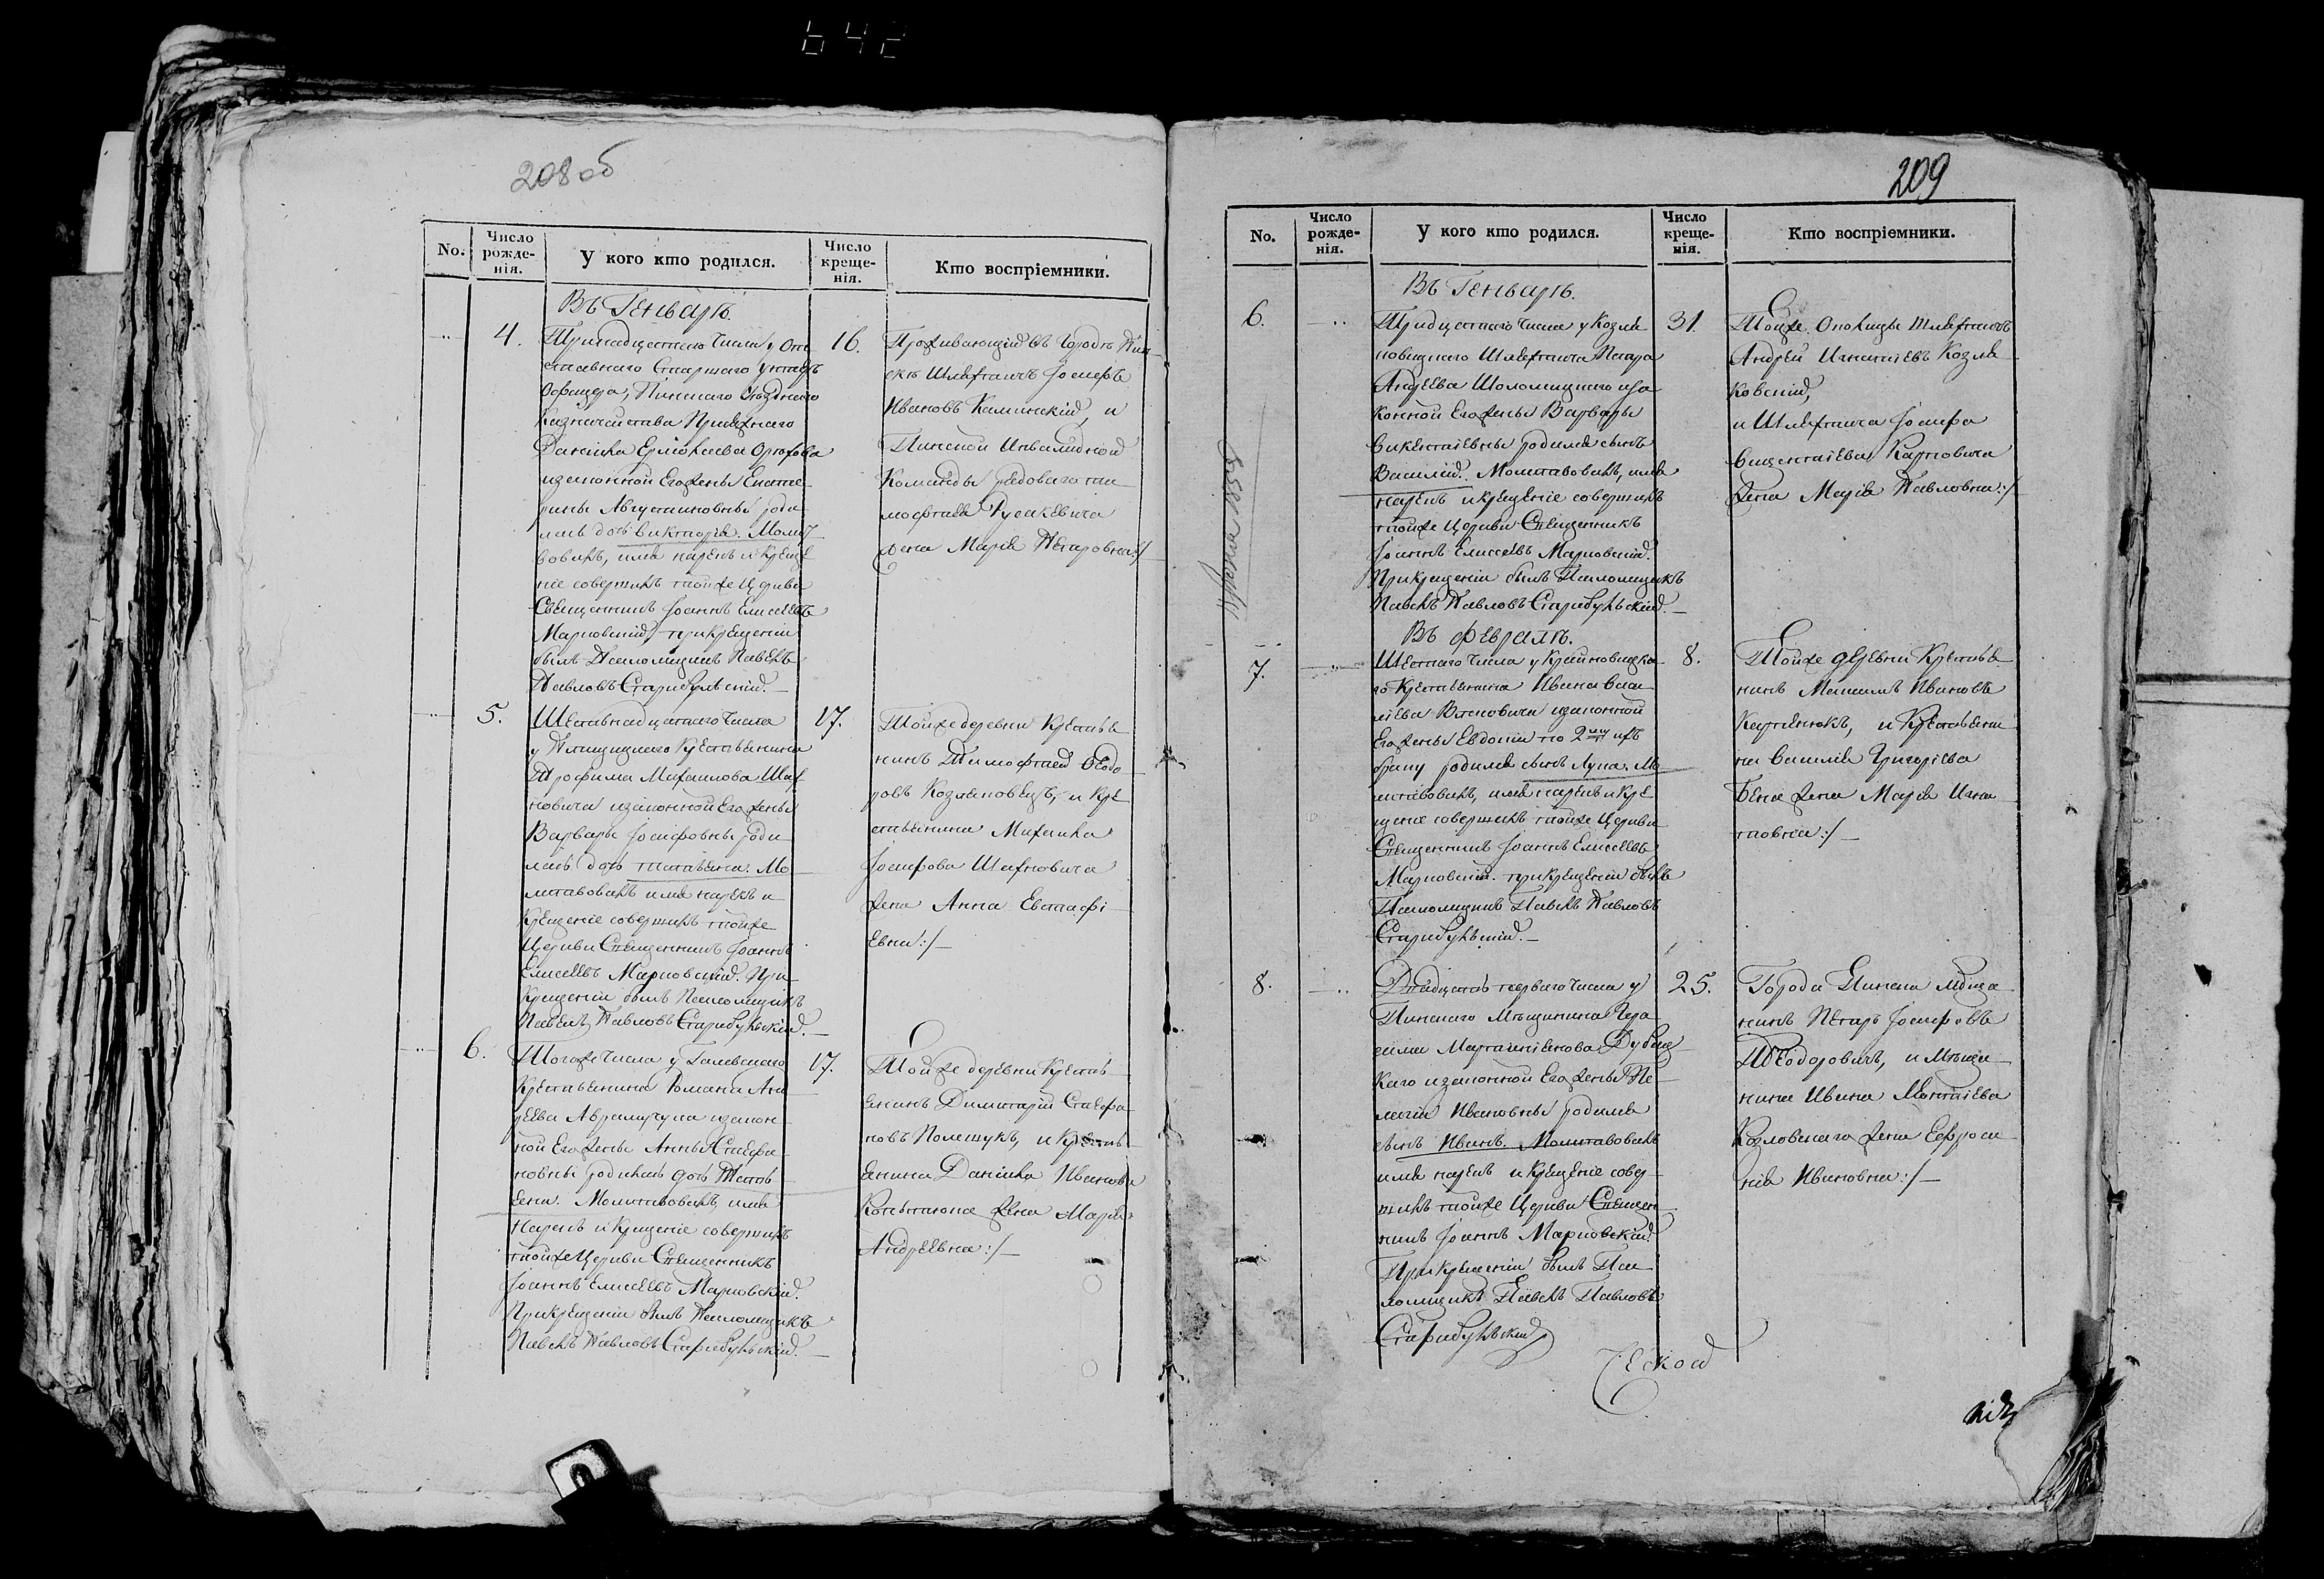 642
208 об
No.
Число рожде-нія.
У кого кто родился.
Число креще-нія.
Кто воспріемники.
Въ Генварѣ.
4.
Тринадцатаго числа у От
ставнаго Старшаго ундеръ
Офицера, Пинскаго Уѣзднаго
Казначейства Присяжнаго
Даніила Ермолаева
изаконной Его жены Екате
рины Августиновны роди
лась дочь Викторія. Молит
вовалъ, имя нарекъ и креще
ніе совершилъ тойже Церкви
Священникъ Іоаннъ Елисеевъ
Марковскій, при крещеніи
былъ Псаломщикъ Павелъ
Павловъ
16.
Проживающій въ Городѣ Пин
скѣ Шляхтичъ Іосифъ
Ивановъ Каминскій, и
Пинской Инвалидной
Команды рядоваго Ти
мофтея Русакевича
жена Марія Петровна:/
5.
Шестнадцатаго числа
у крестьянина
Трофима Михайлова Шах
новича изаконной Его жены
Варвары Іосифовны роди
лась дочь Татьяна. Мо
литвовалъ имя нарекъ и
Крещеніе совершилъ тойже
Церкви Священникъ Іоаннъ
Елисеевъ Марковскій. При
Крещеніи былъ Псаломщикъ
Павелъ Павловъ
17.
Тойже деревни Крестья
нинъ Тимофтей Ѳеодо
ровъ Козляковецъ, и Кре
стьянина Михаила
Іосифова Шахновича
жена Анна Евстафі
Евна:/—
6.
Тогоже числа у Галевскаго
Крестьянина Романа Анд
реева изакон
ной Его жены Анны Стефа
новны родилась дочь Тать
яна. Молитвовалъ, имя
Нарекъ и Крещеніе совершилъ
тойже Церкви Священникъ
Іоаннъ Елисеевъ Марковскій.
При крещеніи былъ Псаломщикъ
Павелъ Павловъ
17.
Тойже деревни Кресть
янинъ Димитрій Стефа
новъ Полещукъ, и Кресть
янина Даніила Иванова
жена Марія
Андреевна:/—
209
No.
Число рожде-нія.
У кого кто родился.
Число креще-нія.
Кто воспріемники.
Въ Генварѣ.
6.
Тридцатаго числа у Козля
ковицкаго Шляхтича Петра
Андреева Шоломицкаго иза
конной Его жены Варвары
Викентіевны родился сынъ
Василій. Молитвовалъ, имя
нарекъ и крещеніе совершилъ
тойже Церкви Священникъ
Іоаннъ Елисеевъ Марковскій.
При крещеніи былъ Псаломщикъ
Павелъ Павловъ
31.
Тойже Околицы Шляхтичъ
Андрей Игнатіевъ Козля
ковскій,
и Шляхтича Іосифа
Викентіева Карповича
жена Марія Павловна:/
Въ Февралѣ.
7.
Шестаго числа у Крайновицка
го Крестьянина Ивана Васи
ліева изаконной
Его жены Евдокіи по 2му ихъ
браку родился сынъ Лука. Мо
литвовалъ, имя нарекъ и Кре
щеніе совершилъ тойже Церкви
Священникъ Іоаннъ Елисеевъ
Марковскій. при крещеніи былъ
Псаломщикъ Павелъ Павловъ
8.
Тойже деревни Крестья
нинъ Максимъ Ивановъ
и Крестьяни
на Василія Григоріева
жена Марія Игна
тіовна:/—
8.
Двадцать перваго числа у
Пинскаго Мѣщанина Гера
сима
каго изаконной Его жены Пе
лагіи Ивановны родился
сынъ Иванъ. Молитвовалъ
имя нарекъ и Крещеніе совер
шилъ тойже Церкви Священ
никъ Іоаннъ Марковскій.
При крещеніи былъ Пса
ломщикъ Павелъ Павловъ
25.
Города Пинска мѣща
нинъ Петръ Іосифовъ
Ѳеодоровичъ, и Мѣща
нина Ивана
Козловскаго жена Евфроси
нія Ивановна:/—